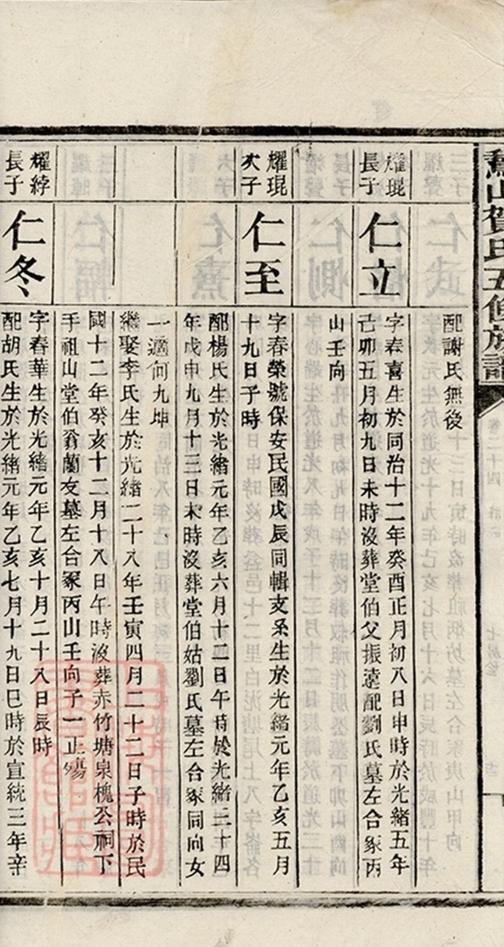 山賀氏五修族譜
配謝氏無後
耀琨
長子
仁立
字春喜生於同治十二年癸酉正月初八日申時於光緒五年
己卯五月初九日未時沒葬堂伯父振遠配劉氏墓左合冢丙
山壬向
耀琨
次子
仁至
字春榮號保安民國戊辰同輯支系生於光緒元年乙亥五月
十九日子時
配楊氏生於光緒元年乙亥六月十二日午時於光緒三十四
年戊申九月十三日未時沒葬堂伯姑劉氏墓左合冢同向女
一適何九坤
繼娶李氏生於光緒二十八年壬寅四月二十二日子時於民
國十二年癸亥十二月十八日午時沒葬赤竹塘泉槐公祠下
手祖山堂伯翁蘭友墓左合冢丙山壬向子一正殤
耀
長子
仁冬
字春華生於光緒元年乙亥十月二十八日辰時
配胡氏生於光緒元年乙亥七月十九日巳時於宣統三年辛